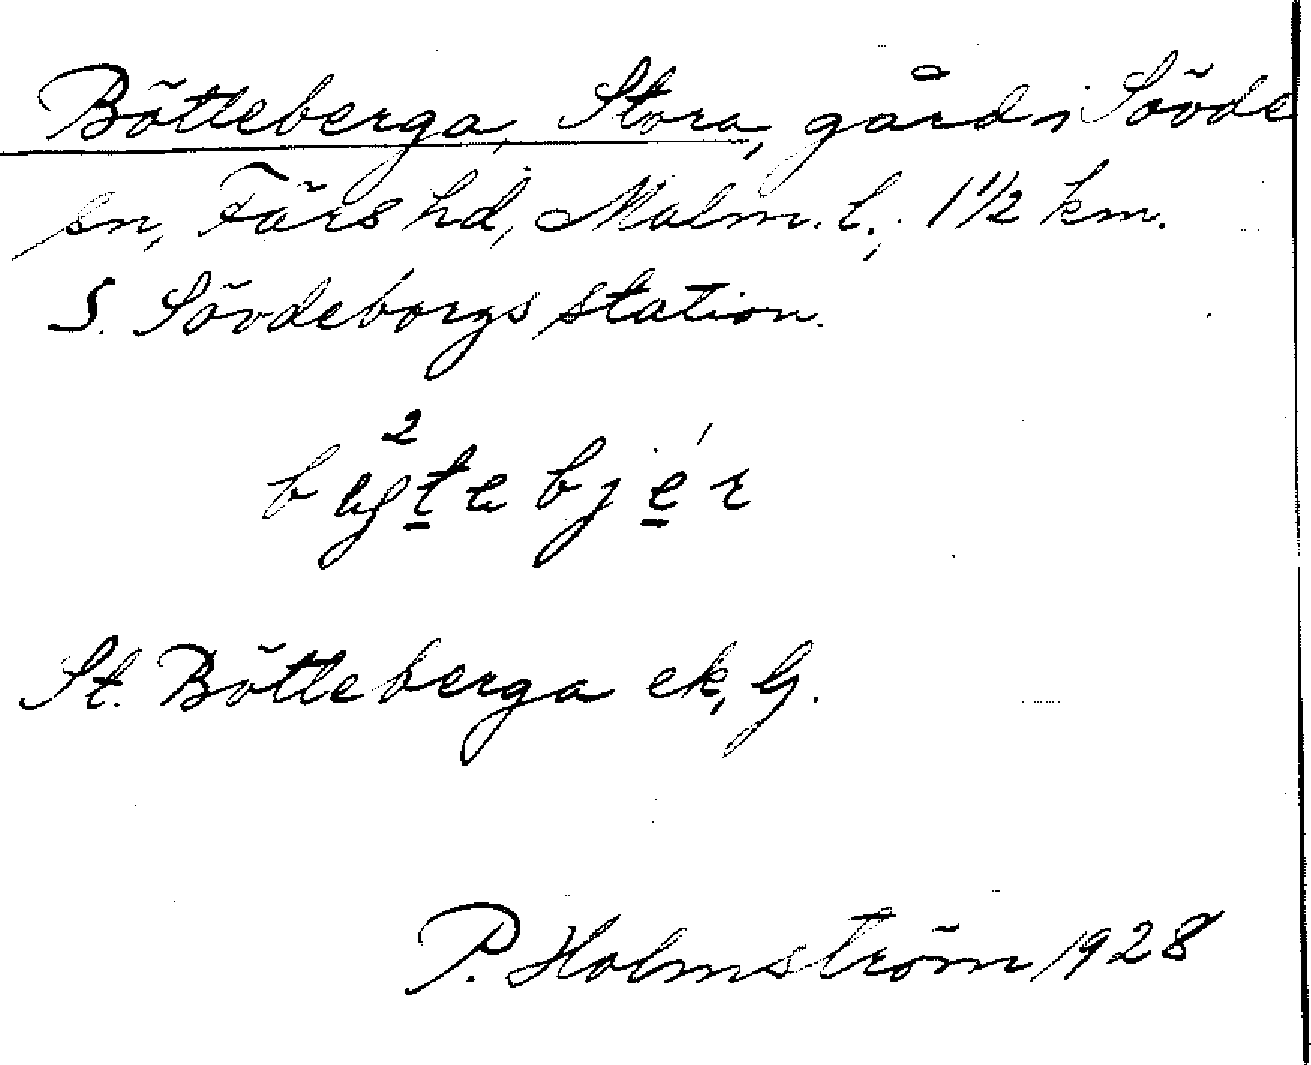 Bötteberga, Stora, gård i Sövde
sn, Färs hd, Malm. l.; 1 1/2 km.
S. Sövdeborgs station.
St. Bötteberga ek, G.
P. Holmström 1928